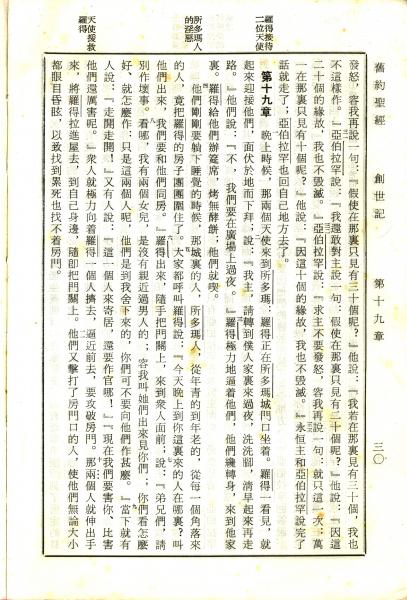 舊約聖經　創世記　第十九章　三〇
發怒，容我再說一句：『假使在那裏只見有三十個呢？』他說：『我若在那裏見有三十個，我也
不這樣作。』亞伯拉罕說：『我還敢對主說一句：假使在那裏只見有二十個呢？』他說：『因這
二十個的緣故，我也不毀滅。』亞伯拉罕說：『求主不要發怒，容我再說一句，就只這一次：萬
一在那裏只見有十個呢？』他說：『因這十個的緣故，我也不毀滅。』永恒主和亞伯拉罕說完了
話就走了；亞伯拉罕也回自己地方去了。
第十九章　晚上時候，那兩個天使來到所多瑪；羅得正在所多瑪城門口坐着。羅得一看見，就
起來迎接他們，面伏於地而下拜；說：『我主，請轉到僕人家裏來過夜，洗洗腳，清早起來再走
路。』他們說：『不，我們要在廣場上過夜。』羅得極力地逼着他們，他們纔轉身，來到他家
裏。羅得給他們辦筵席，烤無酵餅；他們就喫。
他們剛剛要躺下睡覺的時候，那城裏的人，所多瑪人，從年青的到年老的，從每一個角落來
的人，竟把羅得的房子團團圍住了。大家都呼叫羅得說：『今天晚上到你這裏來的人在哪裏？叫
他們出來，我們要和他們同房。』羅得出來，隨手把門關上，來到衆人面前；說：『弟兄們，請
別作壞事。看哪，我有兩個女兒，是沒有親近過男人的；容我叫她們出來見你們；你們看怎麼
好，就怎麼作；只是這兩個人呢，他們是到我舍下來的，你們可不要向他們作甚麼。』當下就有
人說：『走開走開！』又有人說：『這一個人來寄居，還要作官哪！』『現在我們要害你，比害
他們還厲害呢。』衆人就極力向着羅得一個人擠去，逼近前去，要攻破房門。那兩個人就伸出手
來，將羅得拉進屋去，到自己身邊，隨即把門關上。他們又擊打了房門口的人，使他們無論大小
都眼目昏眩，以致找到累死也找不着房門。
羅得接待
二位天使
所多瑪人
的淫惡
天使援救
羅得